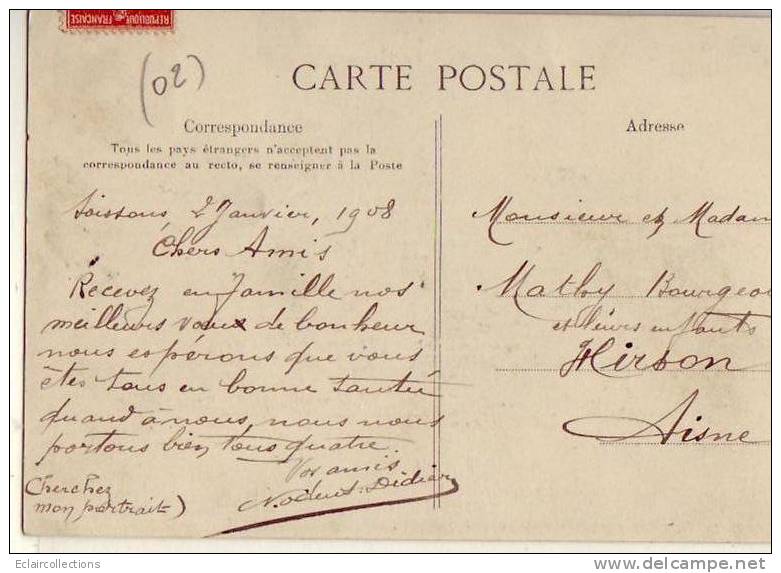 RÉPUBLIQUE FRANÇAISE
(02)
CARTE POSTALE
Correspondance
Tous les pays étrangers n'acceptent pas la
correspondance au recto, se renseigner à la Poste
Adresse
Soissons, 2 Janvier, 1908
Chers Amis
Recevez en famille nos
meilleurs voeux de bonheur
nous espérons que vous
êtes tous en bonne santé
quand à nous, nous nous
portons bien tous quatre.
Vos amis
Didier
(Cherchez
mon portrait)
Monsieur et Madam
Mathy Bourgeoi
et leurs enfants
Hirson
Aisne
Eclaircollections
http://www.delcampe.net